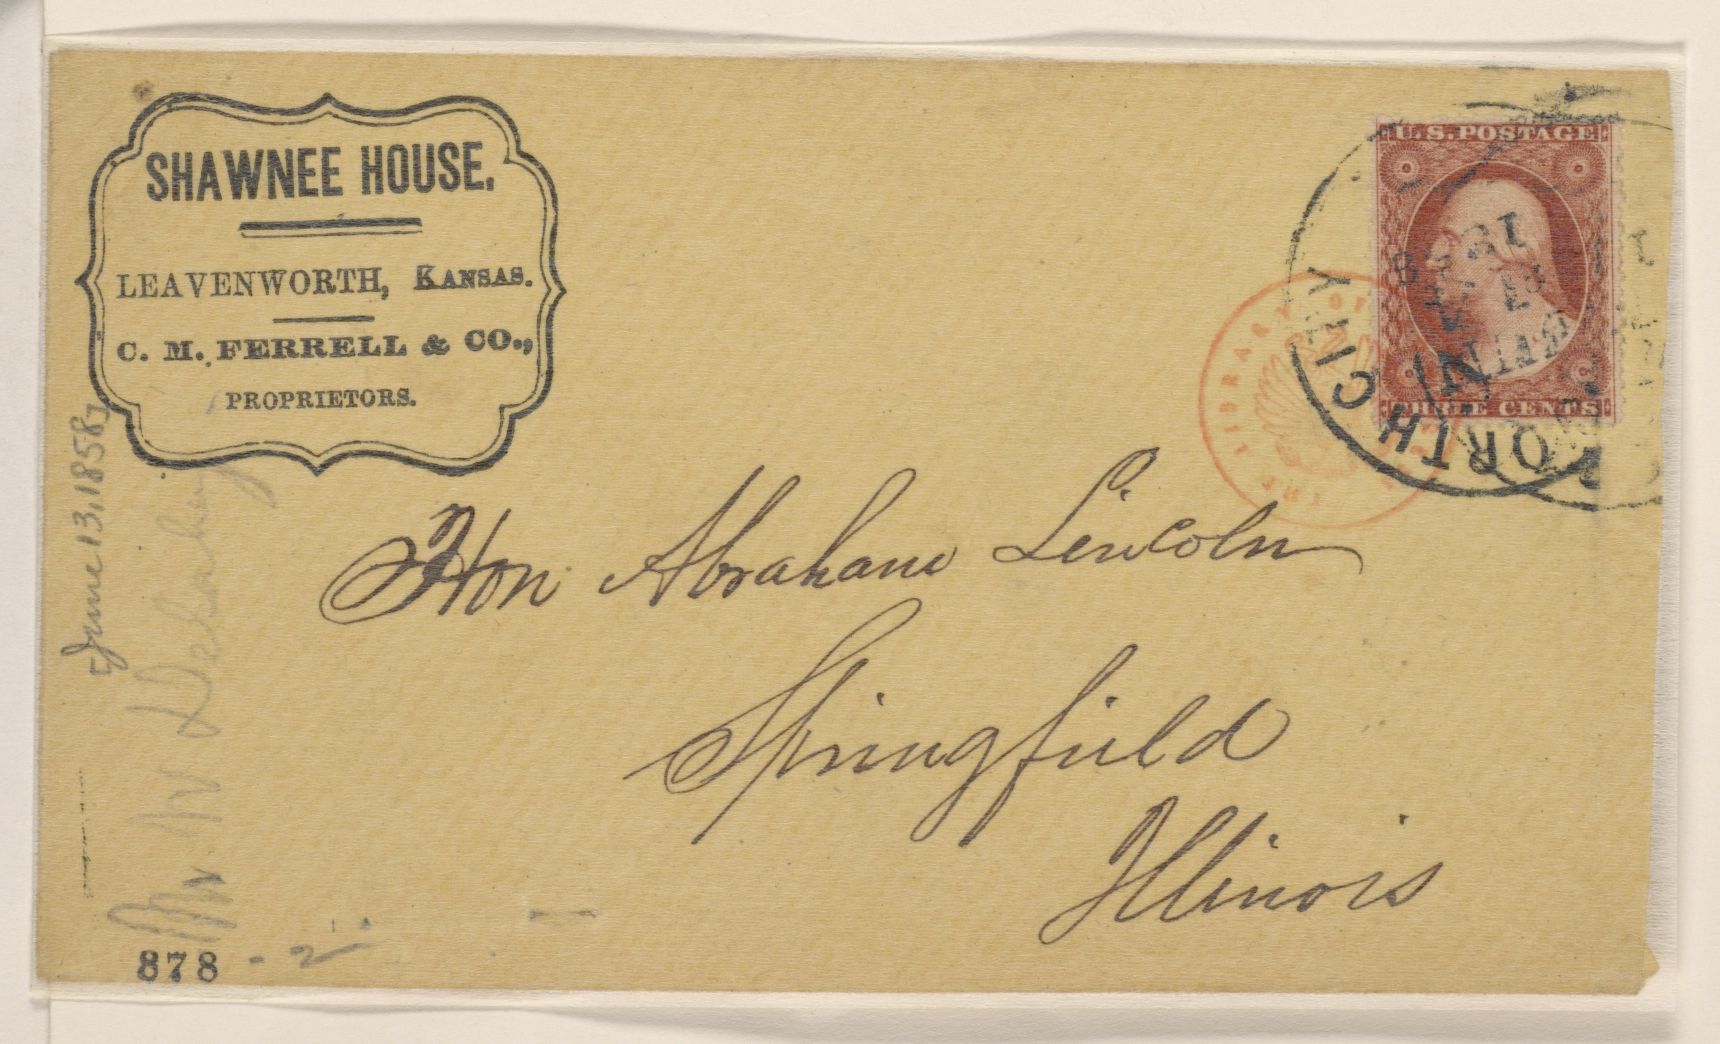 SHAWNEE HOUSE.
LEAVENWORTH, KANSAS.
C. M. FERRELL & CO.,
PROPRIETORS.
U.S. POSTAGE
THREE CENTS
ORTH CITY
THE LIBRARY OF
Hon Abraham Lincoln
Springfield
Illinois
June 13, 1858
M. W Delahay
878 - 2